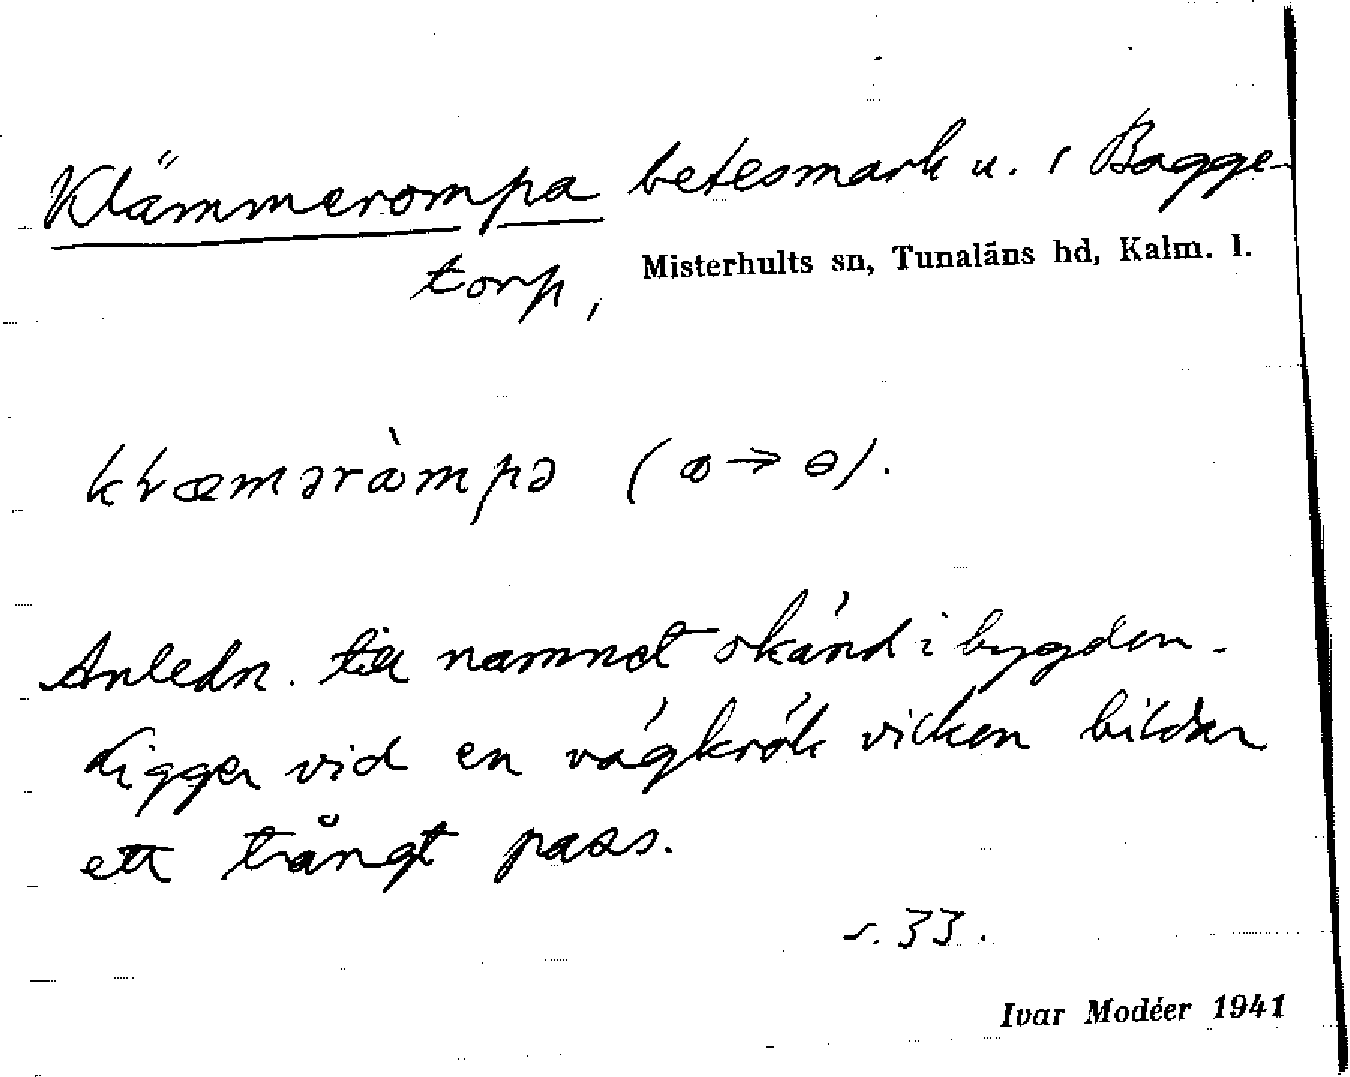 Klämmerompa betesmark u. i Bagge-
torp, Misterhults sn, Tunaläns hd, Kalm. l.
(ɵ → ɵ).
Anledn. till namnet okänd i bygden.
Ligger vid en vägkrök vilken bildar
ett trångt pass.
s. 33.
Ivar Modéer 1941